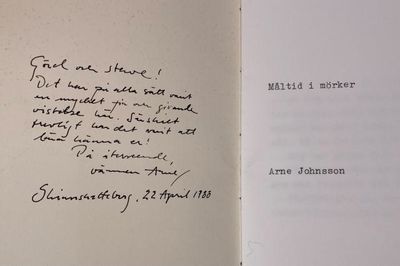 Görel och Sture!
Det har på alla sätt varit
en mycket fin och givande
vistelse här. Särskilt
trevligt har det varit att
lära känna er!
På återseende,
vännen Arne
Skinnskatteberg, 22 April 1988
Måltid i mörker
Arne Johnsson